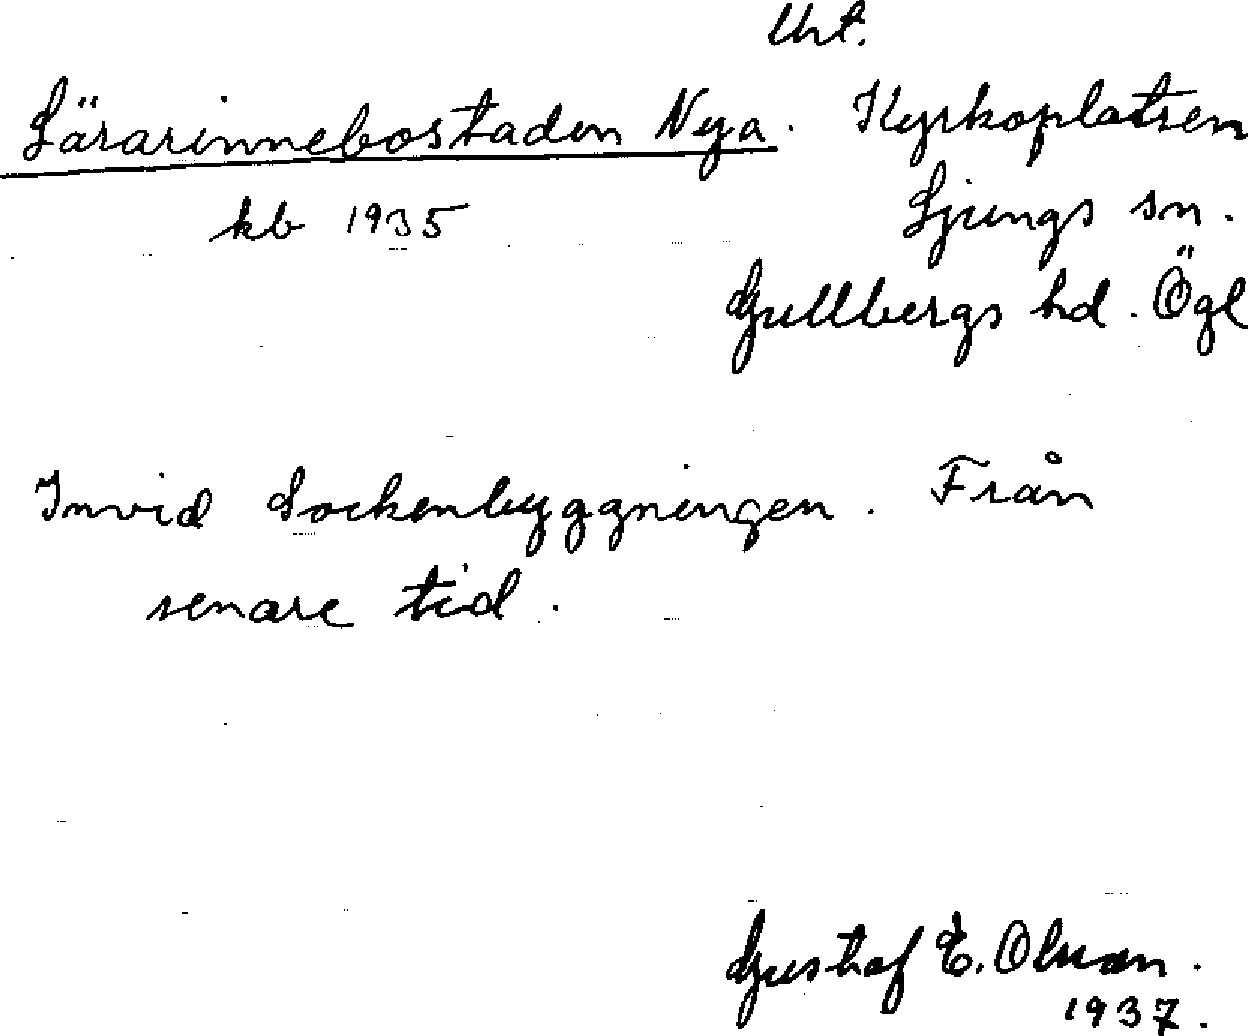 Uht.
Lärarinnebostaden Nya. Kyrkoplatsen
kb 1935 Ljungs sn.
Gullbergs hd. Ögl
Invid Sockenbyggningen. Från
senare tid.
Gustaf E. Olsson.
1937.